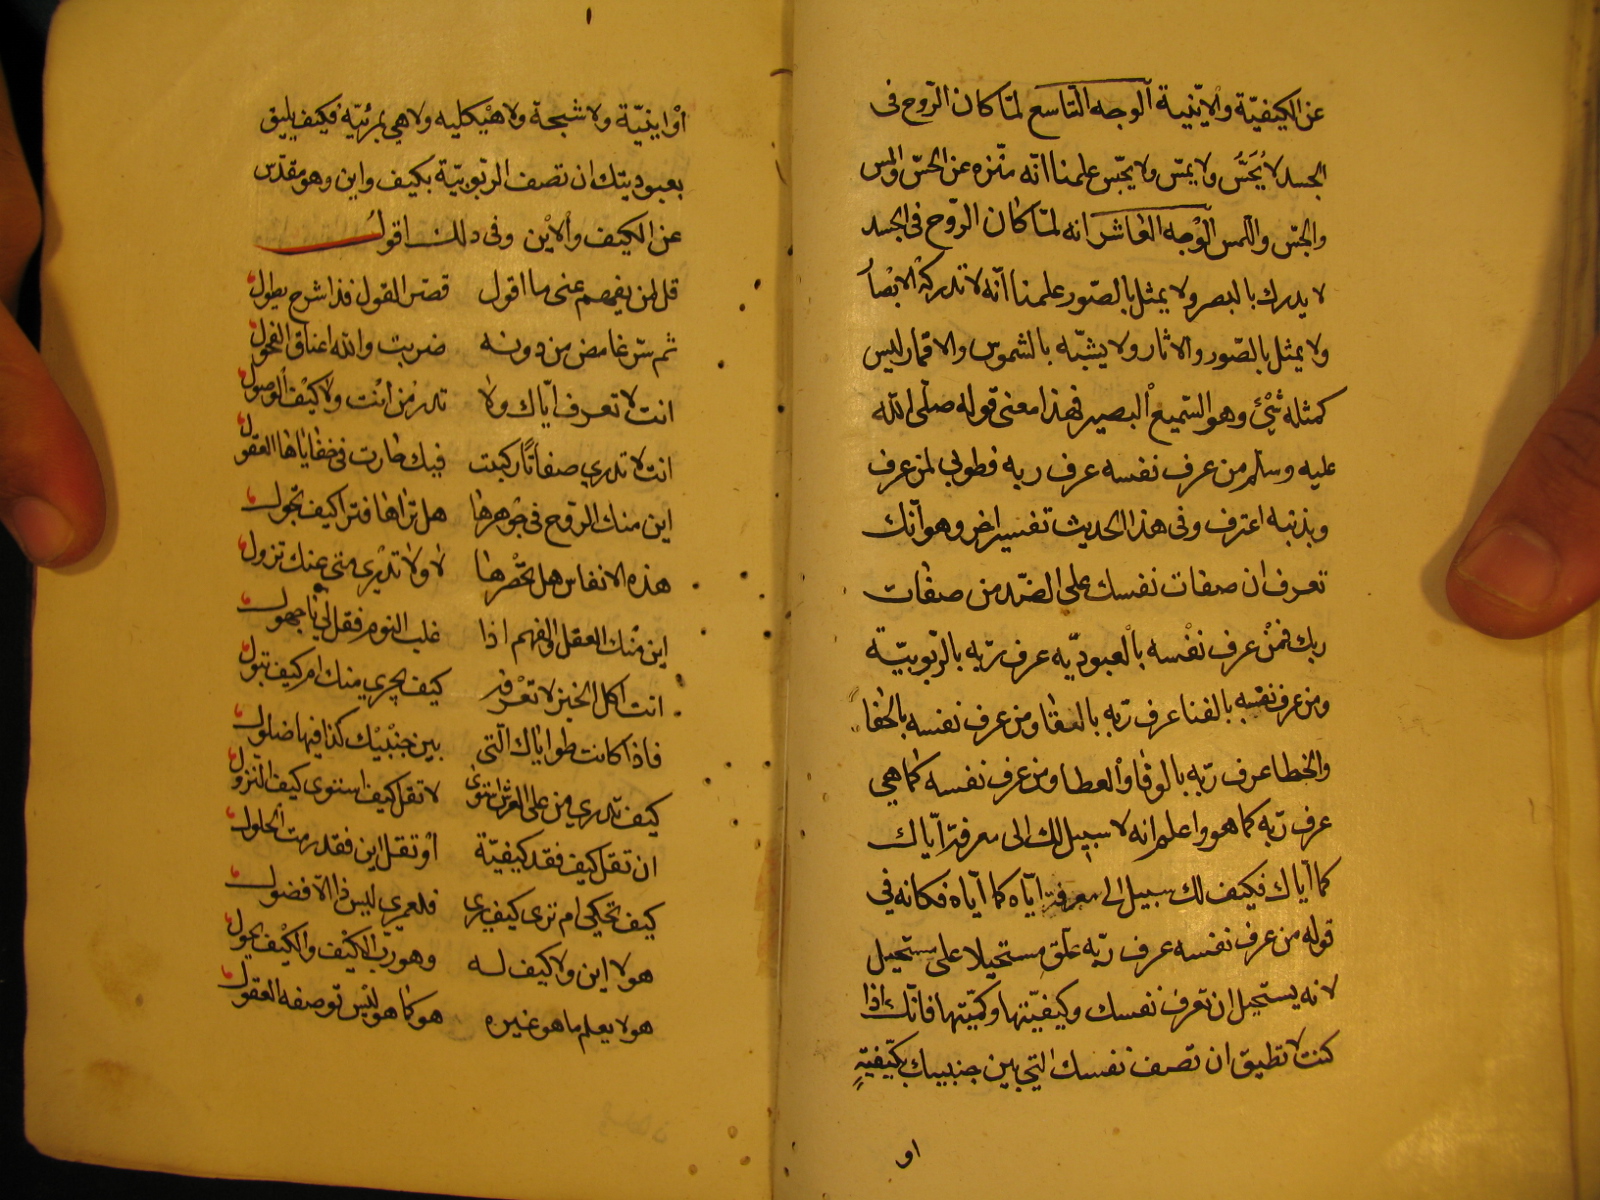 عن الكيفيّة والاينيّة الوجه التاسع لمّا كان الرّوح فى
الجسد لا يُحَسُّ ولا يمسّ ولا يجسّ علمنا انّه منزه عن الحسّ والمس
والجسّ واللمس الوجه العاشر انه لمّا كان الرّوح فى الجسد
لا يدرك بالبصر ولا يمثل بالصّور علمنا انّه لا تدركه الابصار
ولا يمثل بالصّور والاثار ولا يشبّه بالشموس والاقمار ليس
كمثله شئ وهو السّميع البصير فهذا معنى قوله صلّى الله
عليه وسلم من عرف نفسه عرف ربه فطوبى لمن عرف
وبذنبه اعترف وفى هذا الحديث تفسير اخر وهو انّك
تعرف ان صفات نفسك على الضّد من صفات
ربك فمن عرف نفسه بالعبوديّه عرف ربّه بالرّبوبيّة
ومن عرف نفسه بالفنا عرف ربّه بالبقا ومن عرف نفسه بالجفا
والخطا عرف ربّه بالوفا والعطا ومن عرف نفسه كما هي
عرف ربّه كما هو واعلم انه لا سبيل لك الى معرفة ايّاك
كما ايّاك فكيف لك سبيل الى معرفة ايّاه كما ايّاه فكانه في
قوله من عرف نفسه عرف ربّه علق مستحيلا على مستحيل
لانه يستحيل ان تعرف نفسك وكيفيّتها وكميّتها فانّك اذا
كنت لا تطيق ان تصف نفسك التي بين جنبيك بكيّفيّةٍ
او
او اينيّة ولا شبحة ولا هيكليه ولا هي بمرئيّة فكيف يليق
بعبوديتك ان تصف الرّبوبيّة بكيف واين وهو مقدّس
عن الكيف والاين وفى ذلك اقول
قل لمن يفهم عنى ما اقول قصّر القول فذا شرح يطول
ثم سرّ غامض من دونه ضربت والله اعناق الفحول
انت لا تعرف ايّاك ولا تدر من انت ولا كيف الوصول
انت لا تدري صفاتًا ركبت فيك حارت فى خفاياها العقول
اين منك الروح في جوهرها هل تراها فترا كيف تجول
هذه الانفاس هل تحصرها لا ولا تدري متى عنك تزول
اين منك العقل والفهم اذا غلب النوم فقل لي يا جهول
انت اكل الخبز لا تعرفه كيف يجري منك ام كيف تبول
فاذا كانت طواياك الّتى بين جنبيك كذا فيها ضلول
كيف تدري من على العرش استوى لا تقل كيف استوى كيف النزول
ان تقل كيف فقد كيفيّة او تقل اين فقد رمت الحلول
كيف تحكي ام ترى كيف يرى فلعمري ليس ذا الا فضول
هو لا اين ولا كيف له وهو ربّ الكيف والكيف يحول
هو لا يعلم ما هو غيره هو كما هو ليس توصفه العقول